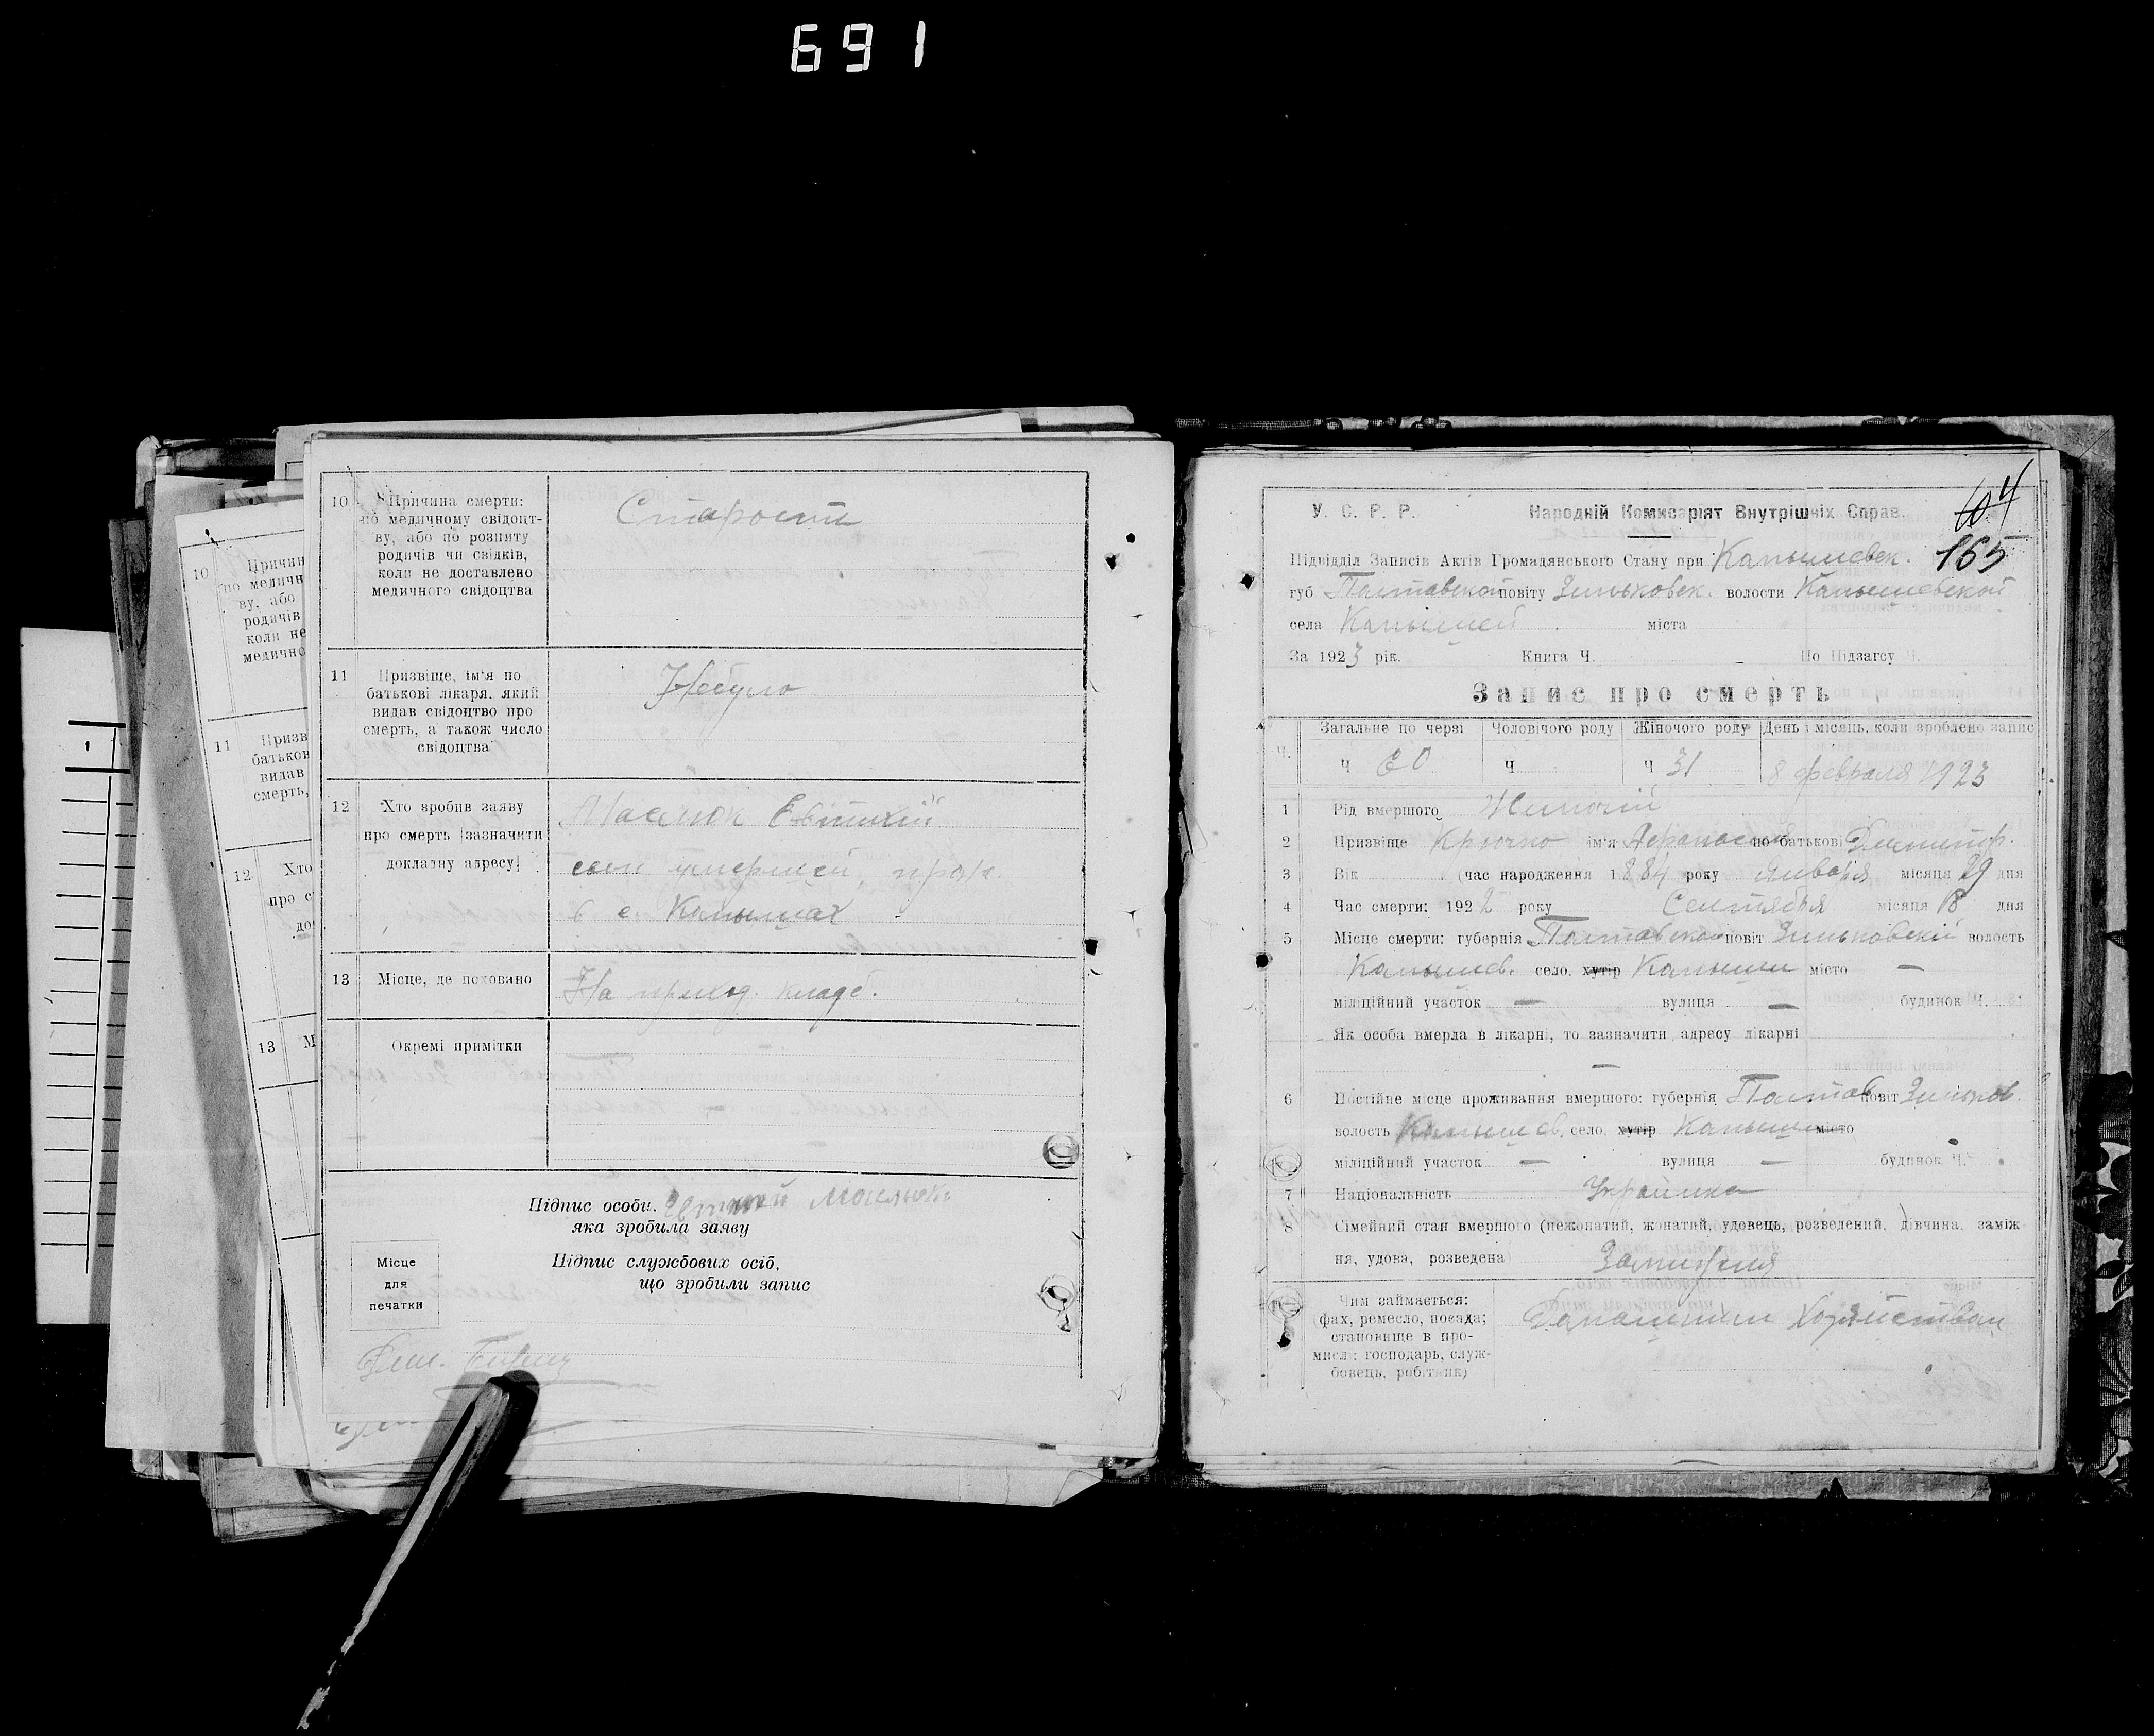 691
10 Причина смерти: по медичному свідоцт-
ву, або по розпиту
родичів чи свідків,
коли не доставлено
медичного свідоцтва
Старости
11 Призвіще, ім'я по
батькові лікаря, який
видав свідоцтво про
смерть, а також число
свідоцтва
Небуло
12 Хто зробив заяву
про смерть (зазначити
докладну адресу)
Масюк Евтихій
сын умершей, прож.
в с. Капышах
13 Місце, де поховано
На приход. кладб.
Окремі примітки
Підпис особи,
яка зробила заяву
Підпис службових осіб,
що зробили запис
Місце
для
печатки
10 Причин
по медичн
ву, або
родичів
коли не
медично
11 Призв
батьков
видав
смерть,
12 Хто
про с
до
13 М
1
104
У. С. Р. Р. Народній Комисаріят Внутрішніх Справ.
165
Підвідділ Записів Актів Громадянського Стану при Капышевск.
губ Полтавской повіту Зиньковск. волости Капышевской
села Капышей міста
За 1923 рік. Книга Ч. По Підзагсу Ч.
Запис про смерть
Ч. Загальне по черзі Чоловічого роду Жіночого роду День і місяць, коли зроблено запис
Ч Ч Ч 31 8 февраля 1923
1 Рід вмершого Жиночій
2 Призвіще Крючко ім'я по батькові Димитр.
3 Вік (час народження 1884 року Января місяця 29 дня
4 Час смерти: 1922 року Сентября місяця 18 дня
5 Місце смерти: губернія Полтавская повіт Зиньковскій волость
Капышев. село, хутір Капыши місто —
міліційний участок — вулиця — будинок Ч.
Як особа вмерла в лікарні, то зазначити адресу лікарні
—
6 Постійне місце проживання вмершого: губернія Полтав. повіт Зиньков.
волость Капышев. село, хутір Капыши місто
міліційний участок — вулиця — будинок Ч.
7 Національність Украинка
8 Сімейний стан вмершого (нежонатий, жонатий, удовець, розведений, дівчина, заміж
ня, удова, розведена Замижня
Чим займається:
(фах, ремесло, посада;
становище в про-
мислі: господарь, служ-
бовець, робітник)
Домашним Хозяйством